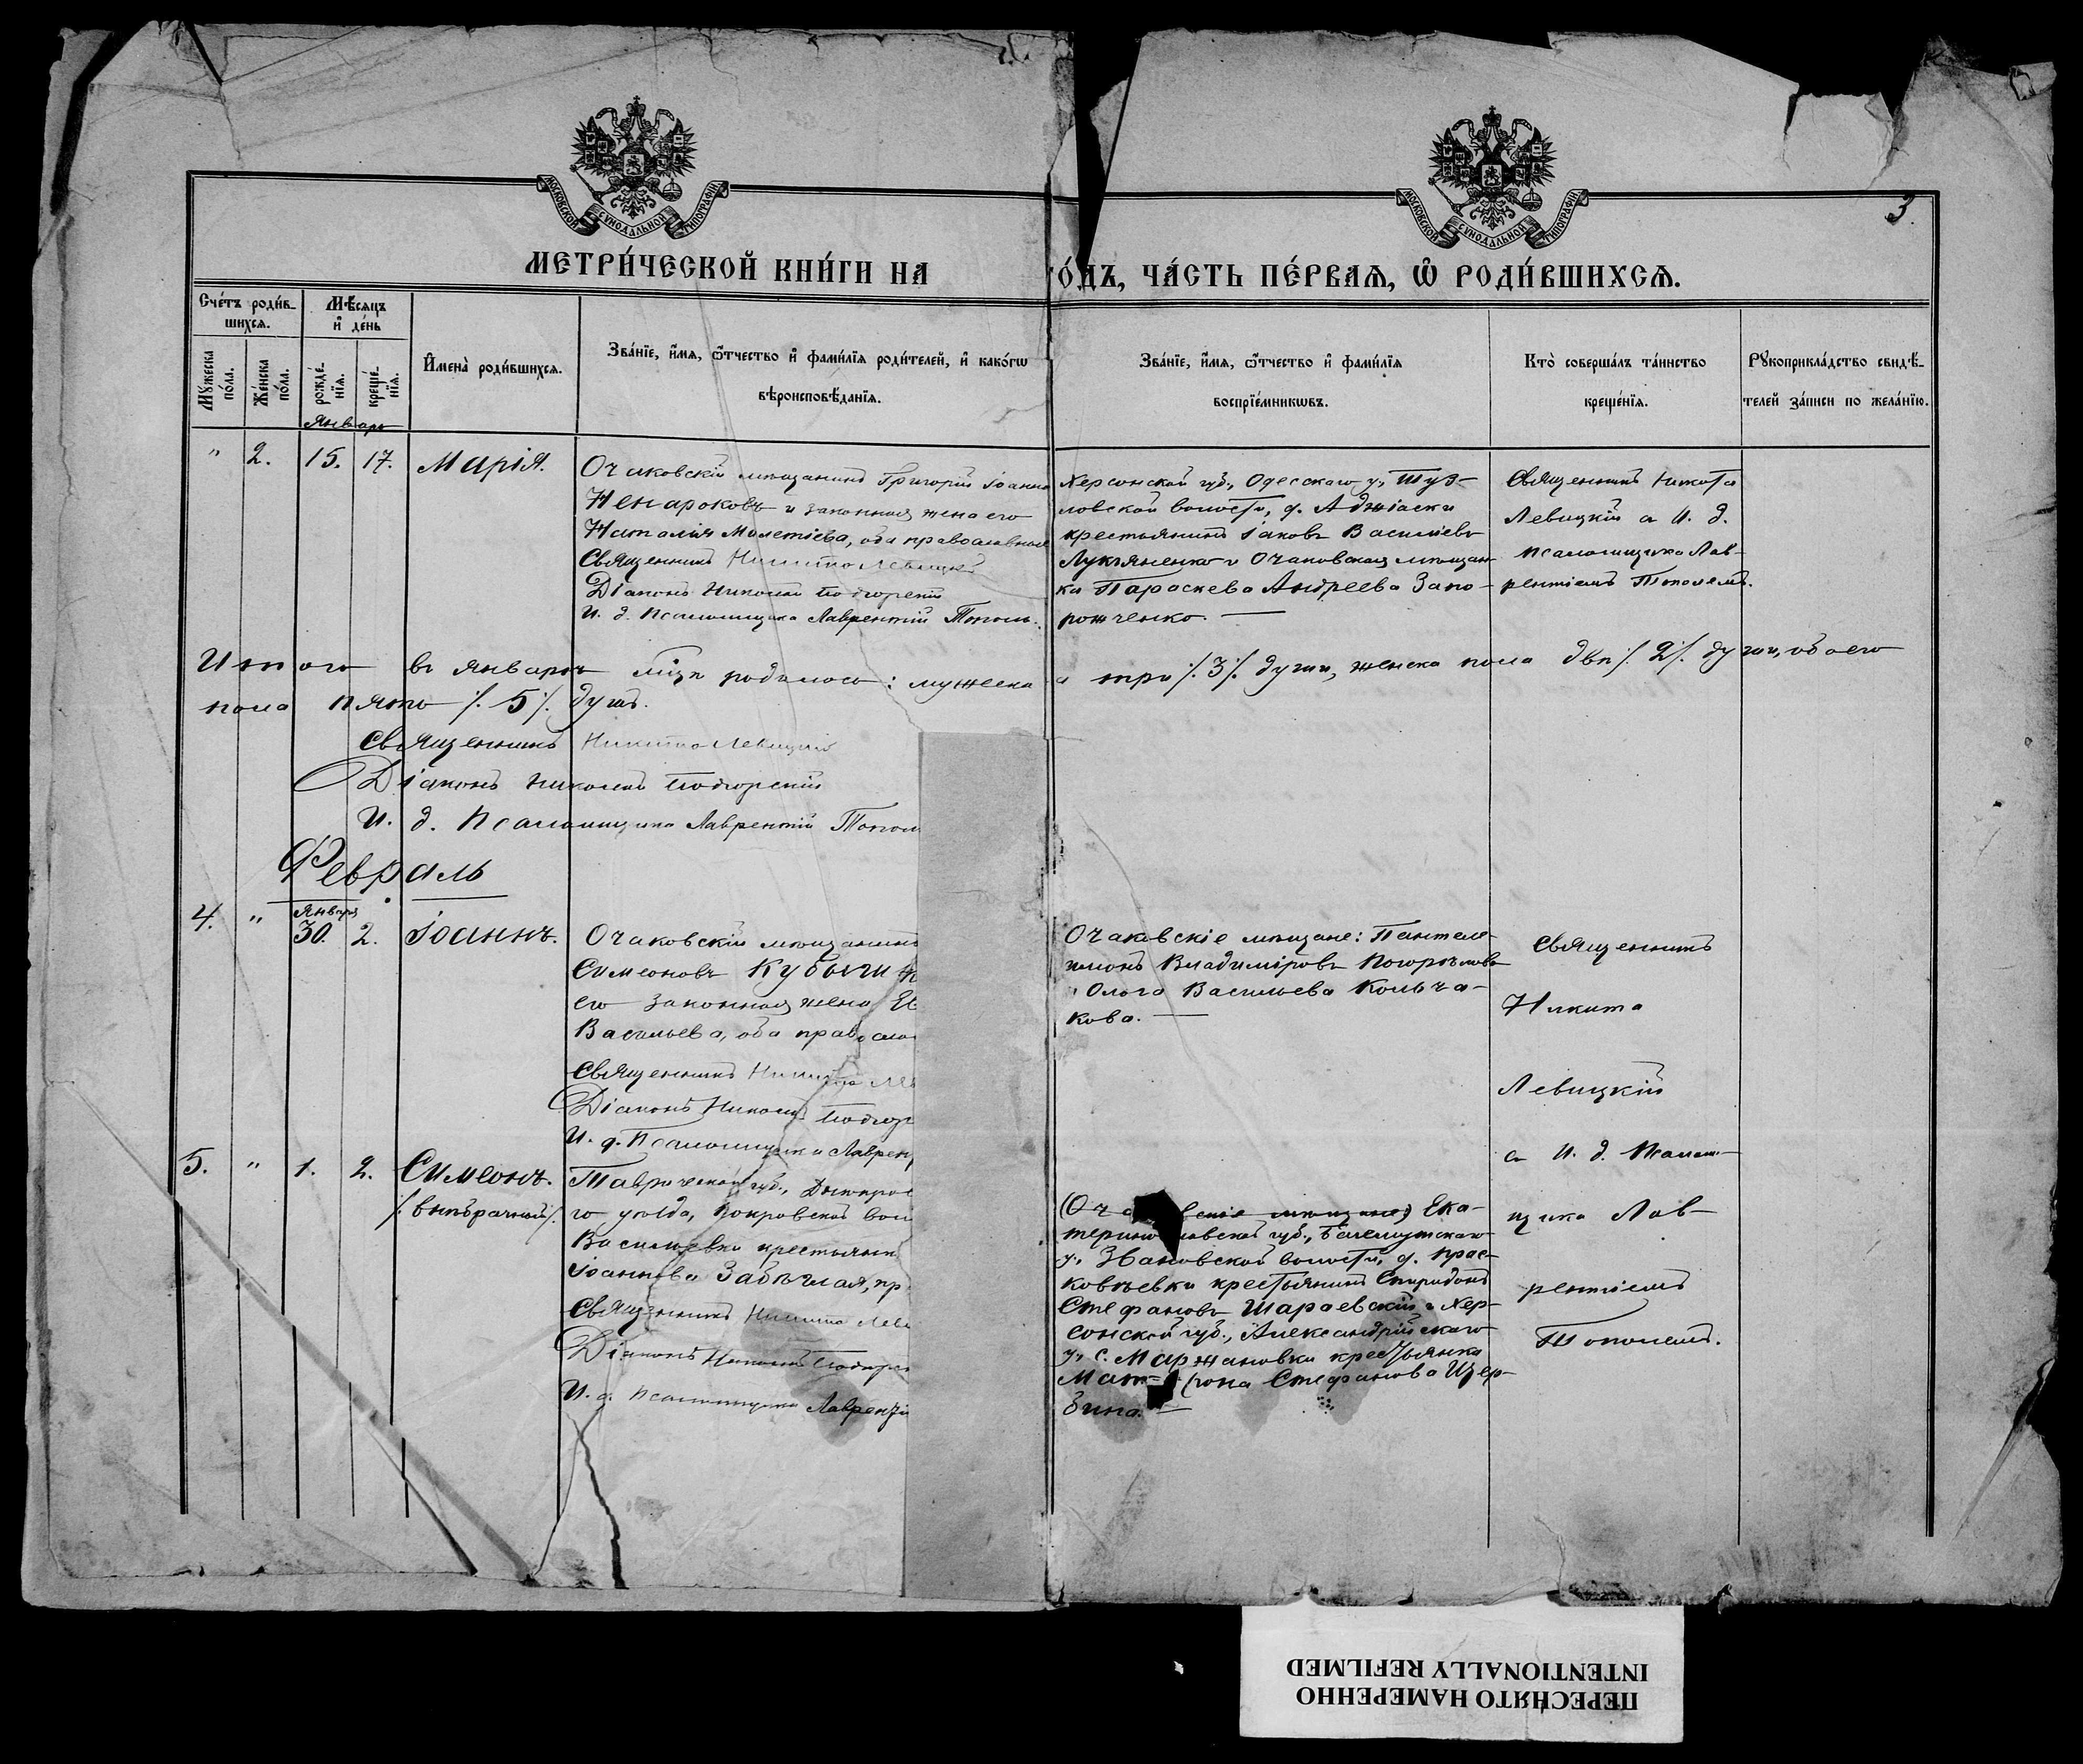 МОСКОВСКОЙ СѴНОДАЛЬНОЙ ТИПОГРАФІИ
МОСКОВСКОЙ СѴНОДАЛЬНОЙ ТИПОГРАФІИ
3.
МЕТРИ́ЧЕСКОЙ КНИ́ГИ НА
О́ДЪ, ЧА́СТЬ ПЕ́РВАѦ, Ѡ РОДИ́ВШИХСѦ.
Сче́тъ роди́в-
шихсѧ.
Мѣ́сѧцъ
и҆ де́нь
Мꙋжеска
по́ла.
Же́нска
по́ла.
рожде́-
нїѧ.
креще́-
нїѧ.
И҆мена̀ роди́вшихсѧ.
Зва́нїе, и҆́мѧ, ѻ҆́тчество и҆ фами́лїѧ роди́телей, и҆ како́гѡ
вѣроисповѣ́данїѧ.
Зва́нїе, и҆́мѧ, ѻ҆́тчество и҆ фами́лїѧ
воспрїе́мникѡвъ.
Кто̀ соверша́лъ та́инство
креще́нїѧ.
Рꙋкоприкла́дство свидѣ́-
телей за́писи по жела́нїю.
Январь
" 2. 15. 17. Марія.
Очаковскій мѣщанинъ Григорій Іоанно
Ненароковъ и законная жена его
Наталія Мелетіева, оба православные
Священникъ Никита Левицкій
Діаконъ Николай Подгорскій
И. д. Псаломщика Лаврентій Тополь.
Херсонской губ., Одесскаго у., Туз-
ловской волости, д. Аджіаски
крестьянинъ Іаковъ Василіевъ
Лукьяненко и Очаковская мѣщан-
ка Параскева Андреева Запо-
рожченко.
Священникъ Никита
Левицкій съ И. д.
псаломщика Лав-
рентіемъ Тополемъ.
Итого въ январѣ м-цѣ родилось: мужеска
а три /.3/. души, женска пола двѣ /.2/. души, обоего
пола пять /.5/. душъ.
Священникъ Никита Левицкій
Діаконъ Николай Подгорскій
И. д. Псаломщика Лаврентій Топол
Февраль
4. " Января 30. 2. Іоаннъ.
Очаковскій мѣщанинъ
Симеоновъ
его законная жена Е
Васильева, оба правосла
Священникъ Никита Лев
Діаконъ Николай Подгор
И. д. Псаломщика Лаврен
Очаковскіе мѣщане: Пантеле-
имонъ Владиміровъ Погорѣловъ
и Ольга Васильева Кольча-
кова.
Священникъ
Никита
Левицкій
съ И. д. Псалом-
щика Лав-
рентіемъ
Тополемъ.
5. " 1. 2. Симеонъ.
/внѣбрачный/.
Таврической губ., Днѣпров
го уѣзда, Покровской вол
Васильевки крестьянк
Іоаннова Забѣглая, пр
Священникъ Никита Леви
Діаконъ Николай Подгорс
И. д. Псаломщика Лаврентi
(Оча вскіе мѣщане) Ека-
терино лавской губ., Бахмутскаго
у., Звановской волости, д. Прас-
ковѣевки крестьянинъ Спиридонъ
Стефановъ Шараевскій и Хер-
сонской губ., Александрійскаго
у. с. Маржановки крестьянка
Мат рона Стефанова Щер-
бина.
ПЕРЕСНЯТО НАМЕРЕННО
INTENTIONALLY REFILMED